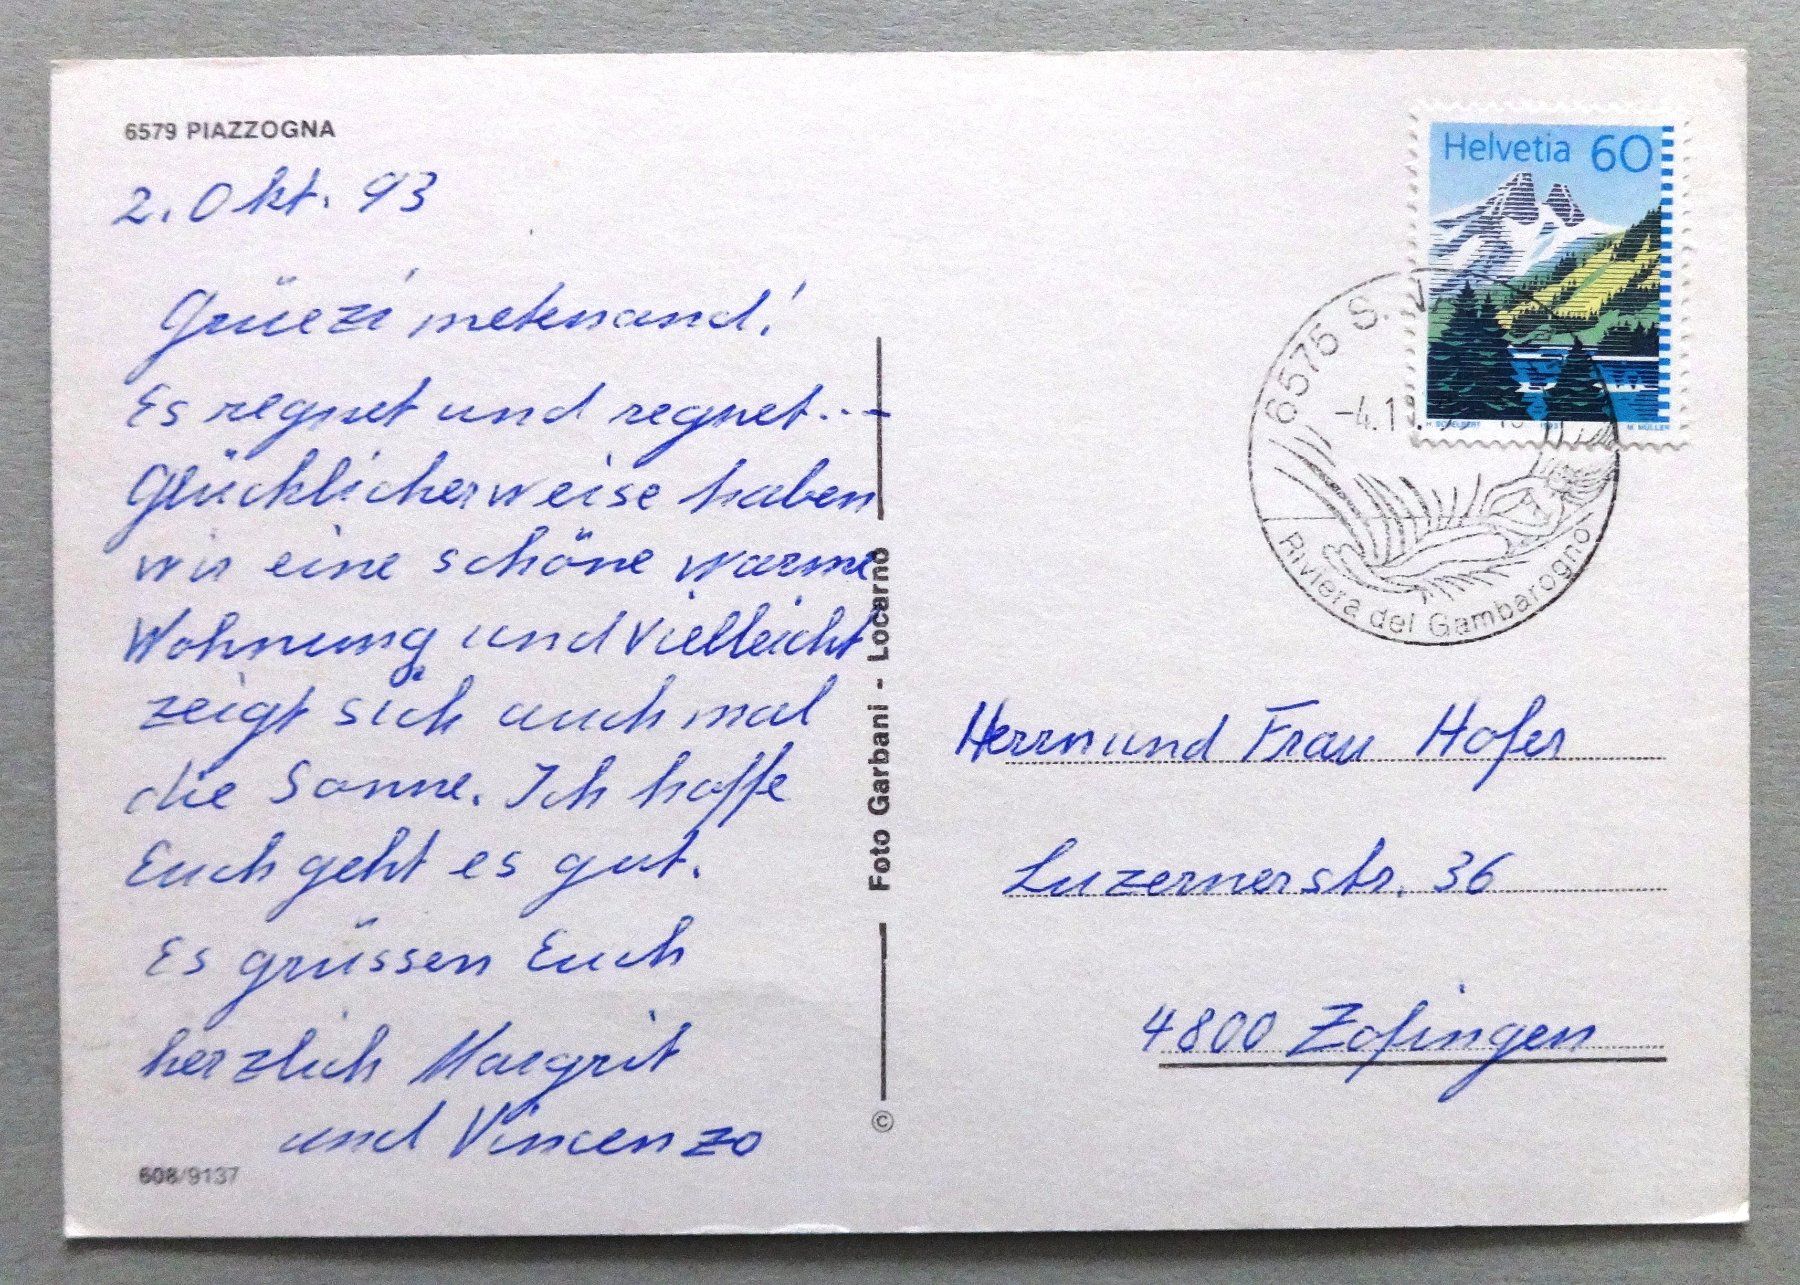 6579 PIAZZOGNA
2. Okt. 93
Grüezi metenand!
Es regnet und regnet...
Glücklicherweise haben
wir eine schöne warme
Wohnung und vielleicht
zeigt sich auch mal
die Sonne. Ich hoffe
Euch geht es gut.
Es grüssen Euch
herzlich Margrit
und Vincenzo
608/9137
Foto Garbani - Locarno
©
Helvetia 60
M. MÜLLER
6575 S.
-4.1
Riviera del Gambarogno
Herrn und Frau Hofer
Luzernerstr. 36
4800 Zofingen